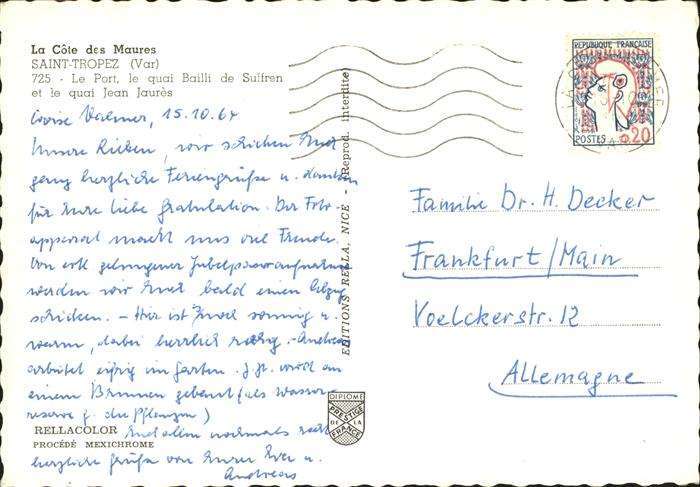 La Côte des Maures
SAINT-TROPEZ (Var)
725 - Le Port, le quai Bailli de Suffren
et le quai Jean Jaurès
15.10.64
Unsere Lieben, wir schicken Euch
ganz herzliche Feriengrüße u. danken
für Eure liebe Gratulation. Der Foto-
apparat macht uns viel Freude.
Von gelungener Jubelpaaraufnahme
werden wir Euch bald einen Abzug
schicken. – Hier ist sonnig u.
warm, dabei herrlich ruhig. Andreas
arbeitet eifrig im Garten. z.Zt. wird an
einem Brunnen gebaut (als Wasser-
reserve f. die Pflanzen)
Euch allen nochmals recht
herzliche Grüße von Eurer u.
Andreas
RELLACOLOR
PROCÉDÉ MEXICHROME
EDITIONS RELLA, NICE - (Reprod. interdite)
DIPLOME
PRESTIGE
DE LA
FRANCE
REPUBLIQUE FRANÇAISE
POSTES 0,20
Familie Dr. H. Decker
Frankfurt/Main
Voelckerstr. 12
Allemagne